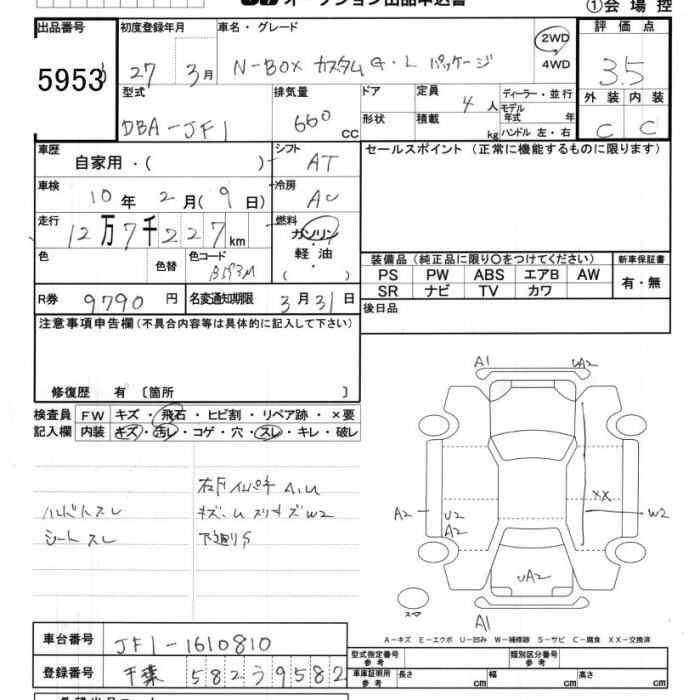 オークション出品申込書
①会場控
出品番号
5953
初度登録年月
27年 3月
車名・グレード
N-BOX カスタム G・L パッケージ
2WD
・
4WD
評価点
3.5
外装 内装
C C
型式
DBA-JF1
排気量
660 CC
ドア
形状
定員
4人
積載
kg
ディーラー・並行
モデル
年式 年
ハンドル 左・右
車歴
自家用・( )
シフト
AT
セールスポイント (正常に機能するものに限ります)
車検
10年 2月(9日)
冷房
AC
走行
12万7千227km
燃料
ガソリン
軽油
( )
色
色替
色コード
B593M
装備品(純正品に限り〇をつけてください)
PS PW ABS エアB AW
SR ナビ TV カワ
新車保証書
有・無
R券
9790円
名変通知期限
3月31日
後日品
注意事項申告欄(不具合内容等は具体的に記入して下さい)
修復歴 有 〔箇所 〕
検査員
記入欄
FW キズ・飛石・ヒビ割・リペア跡・×要
内装 キズ・汚レ・コゲ・穴・スレ・キレ・破レ
ハンドルスレ
シートスレ
A,U
キズ・U スリキズ W2
下廻りS
A1
UA2
A2
U2
A2
XX
W2
UA2
A1
スペア
A-キズ E-エクボ U-凹み W-補修跡 S-サビ C-腐食 XX-交換済
車台番号
JF1-1610810
登録番号
千葉 582 う 9582
型式指定番号
参考
類別区分番号
参考
車庫証明用
参考
長さ cm
幅 cm
高さ cm